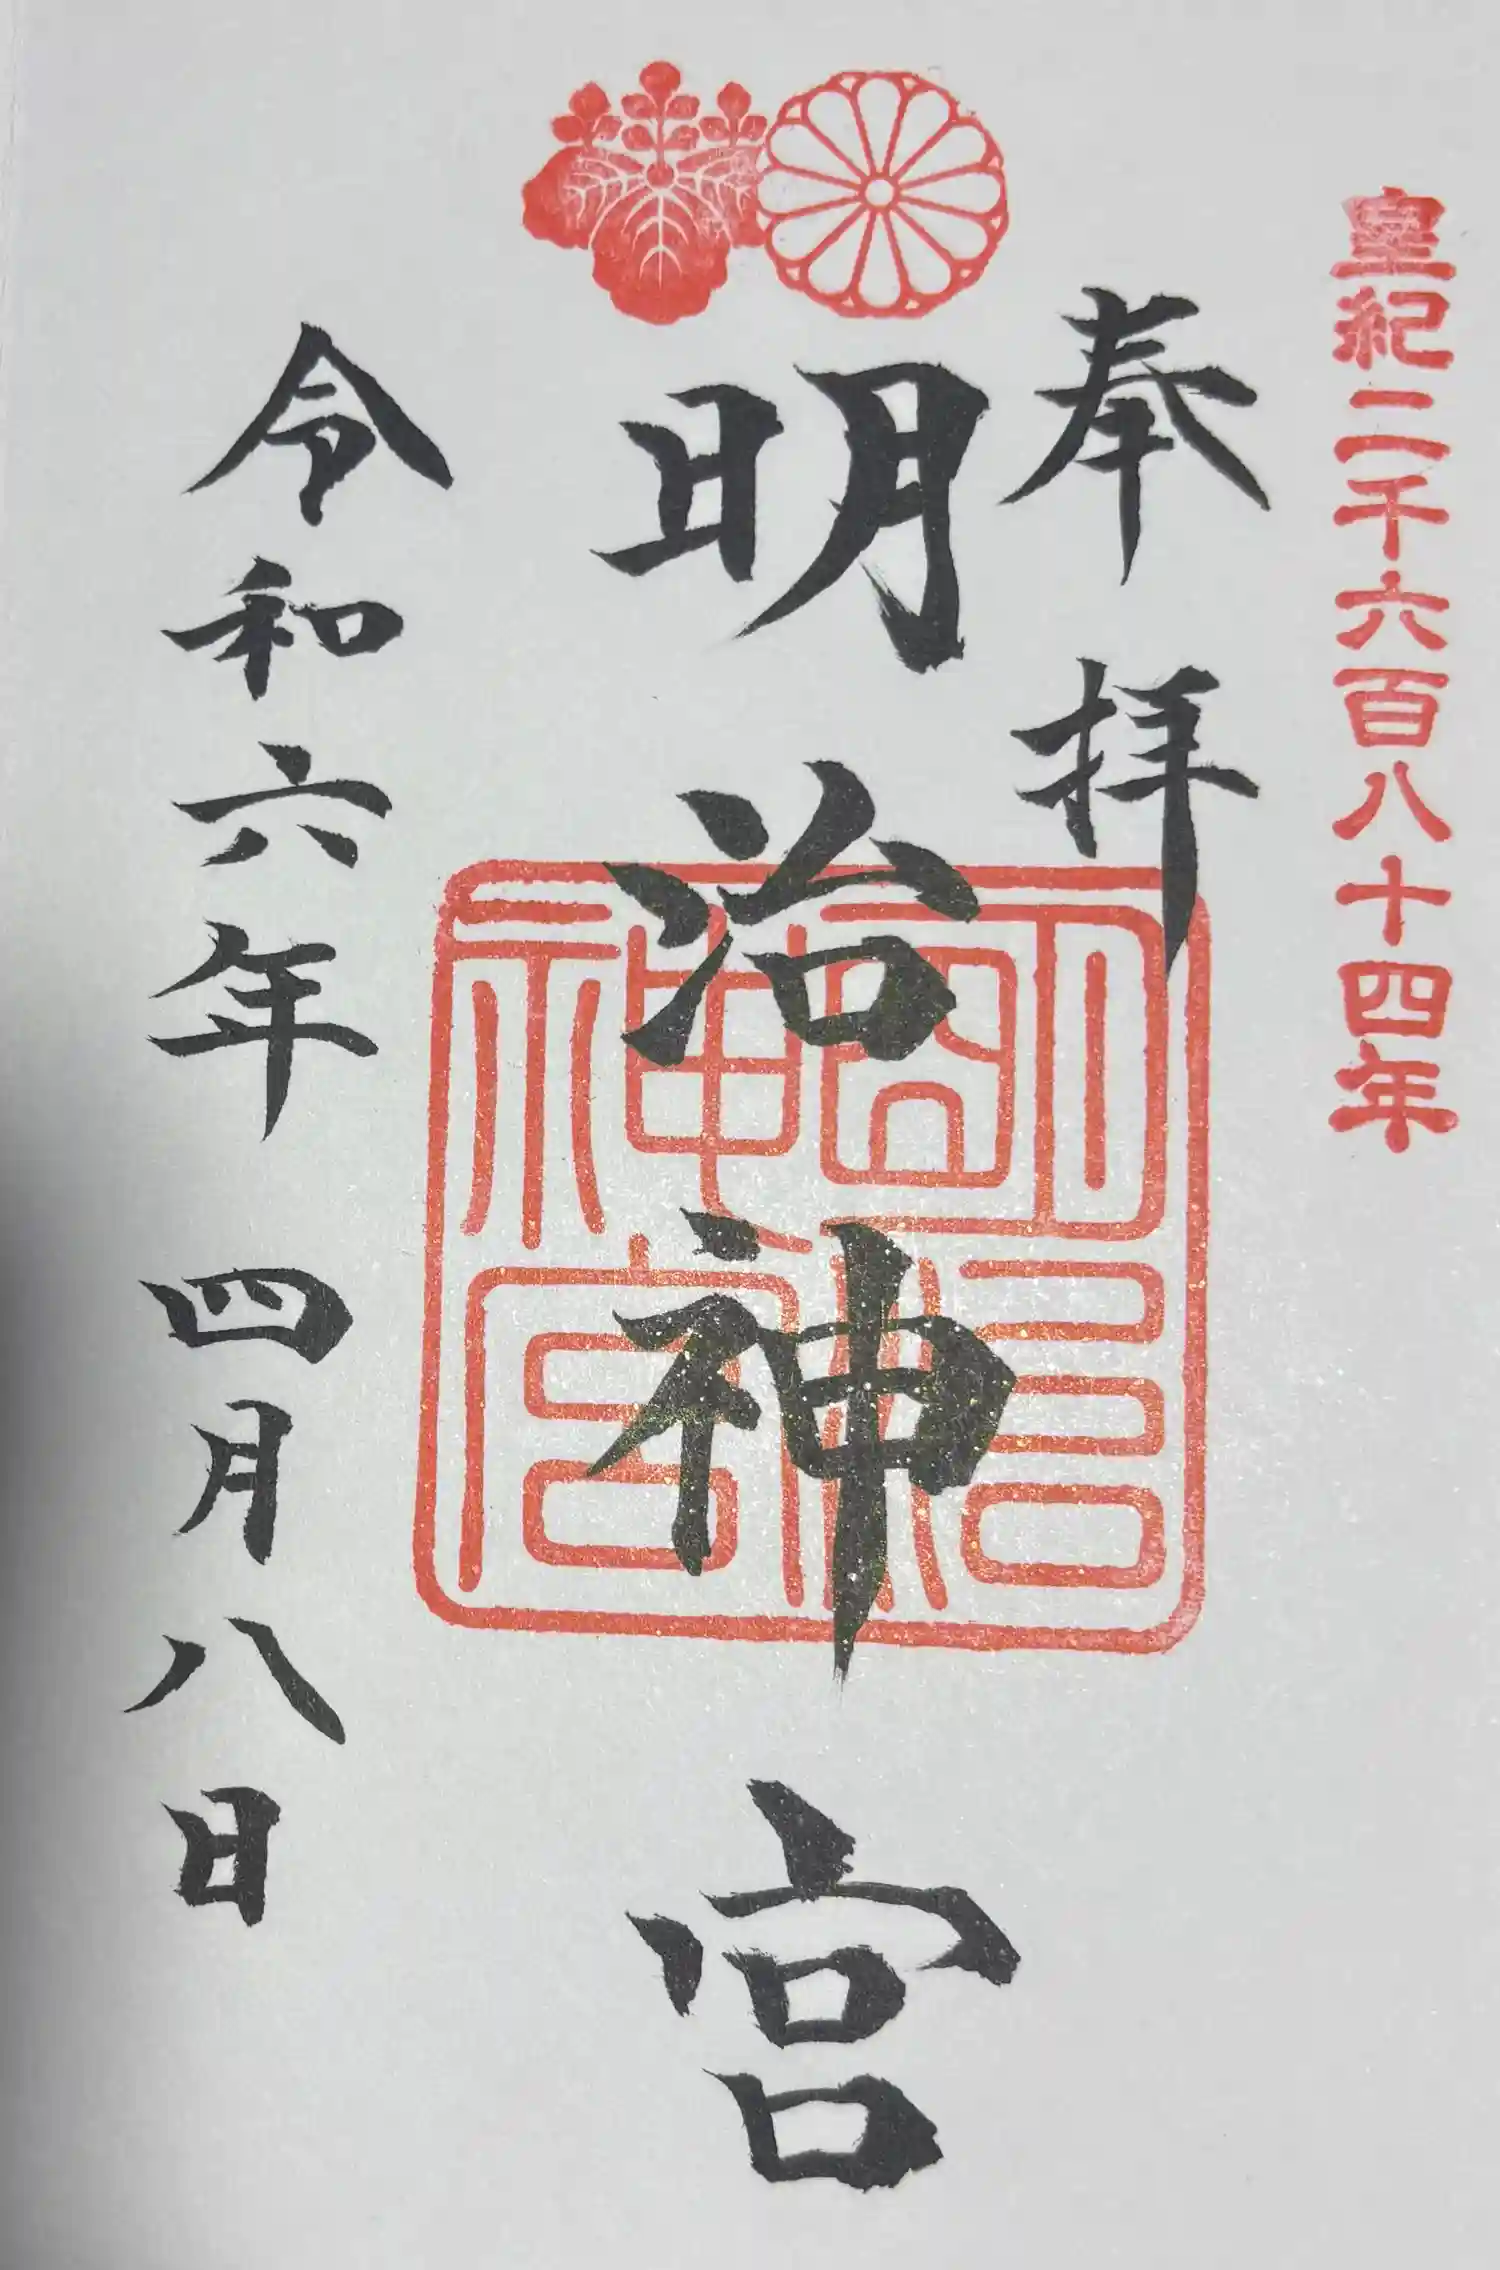 皇紀二千六百八十四年
奉拝
明治神宮
明治神宮
令和六年四月八日